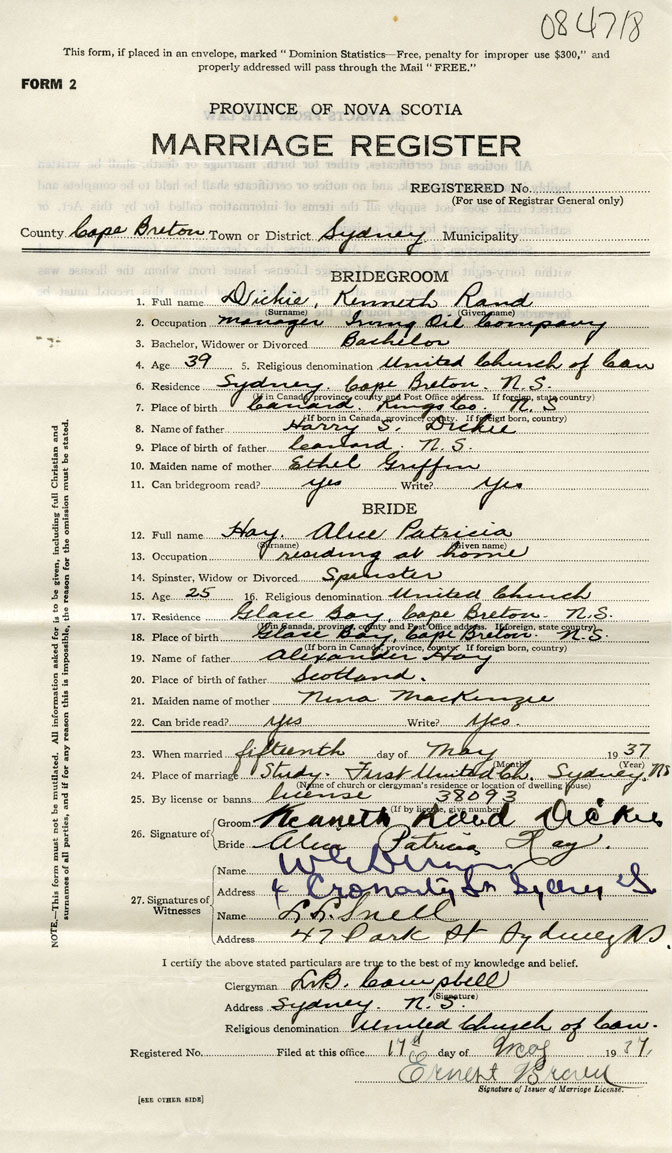 084718
This form, if placed in an envelope, marked "Dominion Statistics—Free, penalty for improper use $300," and
properly addressed will pass through the Mail "FREE."
FORM 2
PROVINCE OF NOVA SCOTIA
MARRIAGE REGISTER
REGISTERED No.
(For use of Registrar General only)
County Cape Breton Town or District Sydney Municipality
BRIDEGROOM
1. Full name Dickie, Kenneth Rand
(Surname) (Given name)
2. Occupation manager Irving Oil Company
3. Bachelor, Widower or Divorced Bachelor
4. Age 39 5. Religious denomination United Church of Can
6. Residence Sydney. Cape Breton. N.S.
(If in Canada, province, county and Post Office address. If foreign, state country)
7. Place of birth Canard. Kings Co. N.S
(If born in Canada, province, county. If foreign born, country)
8. Name of father Harry S. Dickie
9. Place of birth of father Canard, N.S.
10. Maiden name of mother Ethel Griffin
11. Can bridegroom read? yes Write? yes
BRIDE
12. Full name Hay. Alice Patricia
(Surname) (Given name)
13. Occupation residing at home
14. Spinster, Widow or Divorced Spinster
15. Age 25 16. Religious denomination United Church
17. Residence Glace Bay, Cape Breton. N.S.
(If in Canada, province, county and Post Office address. If foreign, state country)
18. Place of birth Glace Bay, Cape Breton. N.S.
(If born in Canada, province, county. If foreign born, country)
19. Name of father Alexander Hay
20. Place of birth of father Scotland.
21. Maiden name of mother Nina MacKenzie
22. Can bride read? yes Write? yes.
23. When married fifteenth day of May 1937
(Month) (Year)
24. Place of marriage Study. First United Ch. Sydney, NS
(Name of church or clergyman's residence or location of dwelling house)
25. By license or banns license 38093
(If by license, give number)
26. Signature of Groom Kenneth Rand Dickie
Bride Alice Patricia Hay.
27. Signatures of Witnesses
Name
Address 4 Cromarty St Sydney NS.
Name L.L. Snell
Address 47 Park St Sydney N.S.
I certify the above stated particulars are true to the best of my knowledge and belief.
Clergyman L.B. Campbell
(Signature)
Address Sydney. N.S.
Religious denomination United Church of Can.
Registered No. Filed at this office 17th day of May 1937,
Ernest Brown
Signature of Issuer of Marriage License.
[SEE OTHER SIDE]
NOTE.—This form must not be mutilated. All information asked for is to be given, including full Christian and
surnames of all parties, and if for any reason this is impossible, the reason for the omission must be stated.